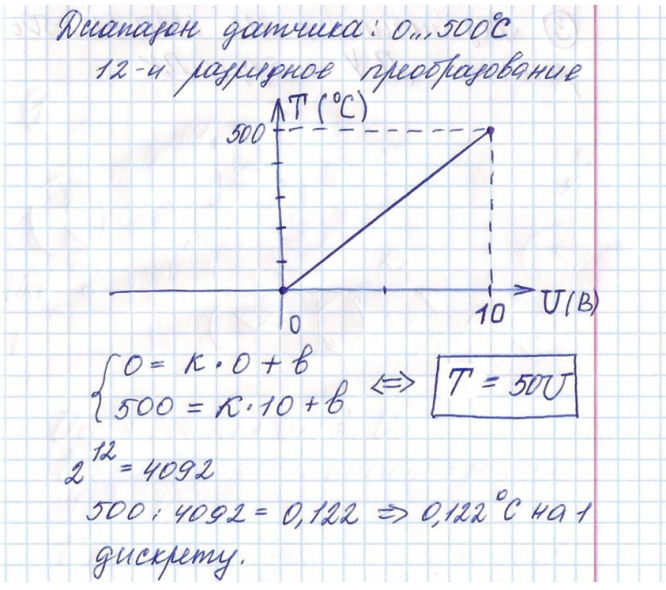 Диапазон датчика: 0...500°C
12-и разрядное преобразование
T (°C)
500
0
10
U(В)
0 = К · 0 + в
500 = К · 10 + в
<=>
T = 50U
2^12 = 4092
500 : 4092 = 0,122 => 0,122°C на 1
дискрету.